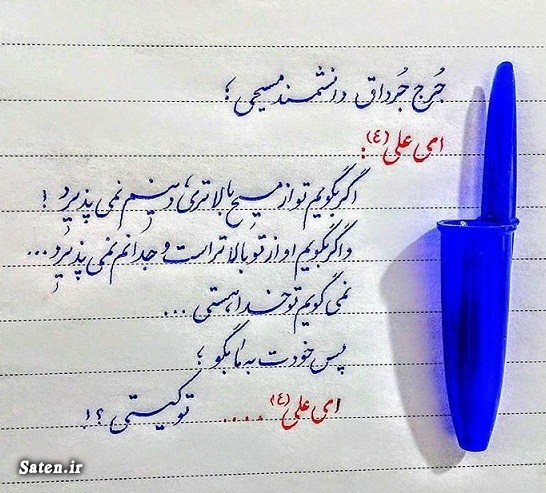 جُرج جُرداق دانشمند مسیحی ؛
ای علی (ع) :
اگر بگویم تو از مسیح بالاتری، دینم نمی پذیرد !
و اگر بگویم او از تو بالاتر است وجدانم نمی پذیرد ...
نمی گویم تو خدا هستی ...
پس خودت به ما بگو ؛
ای علی (ع) .... تو کیستی ؟!
Saten.ir